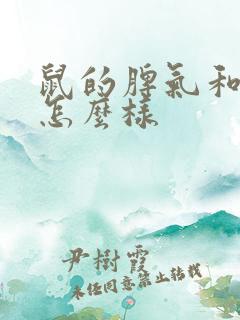 鼠的脾氣和
怎麼樣
尹樹霞
未經同意禁止轉載